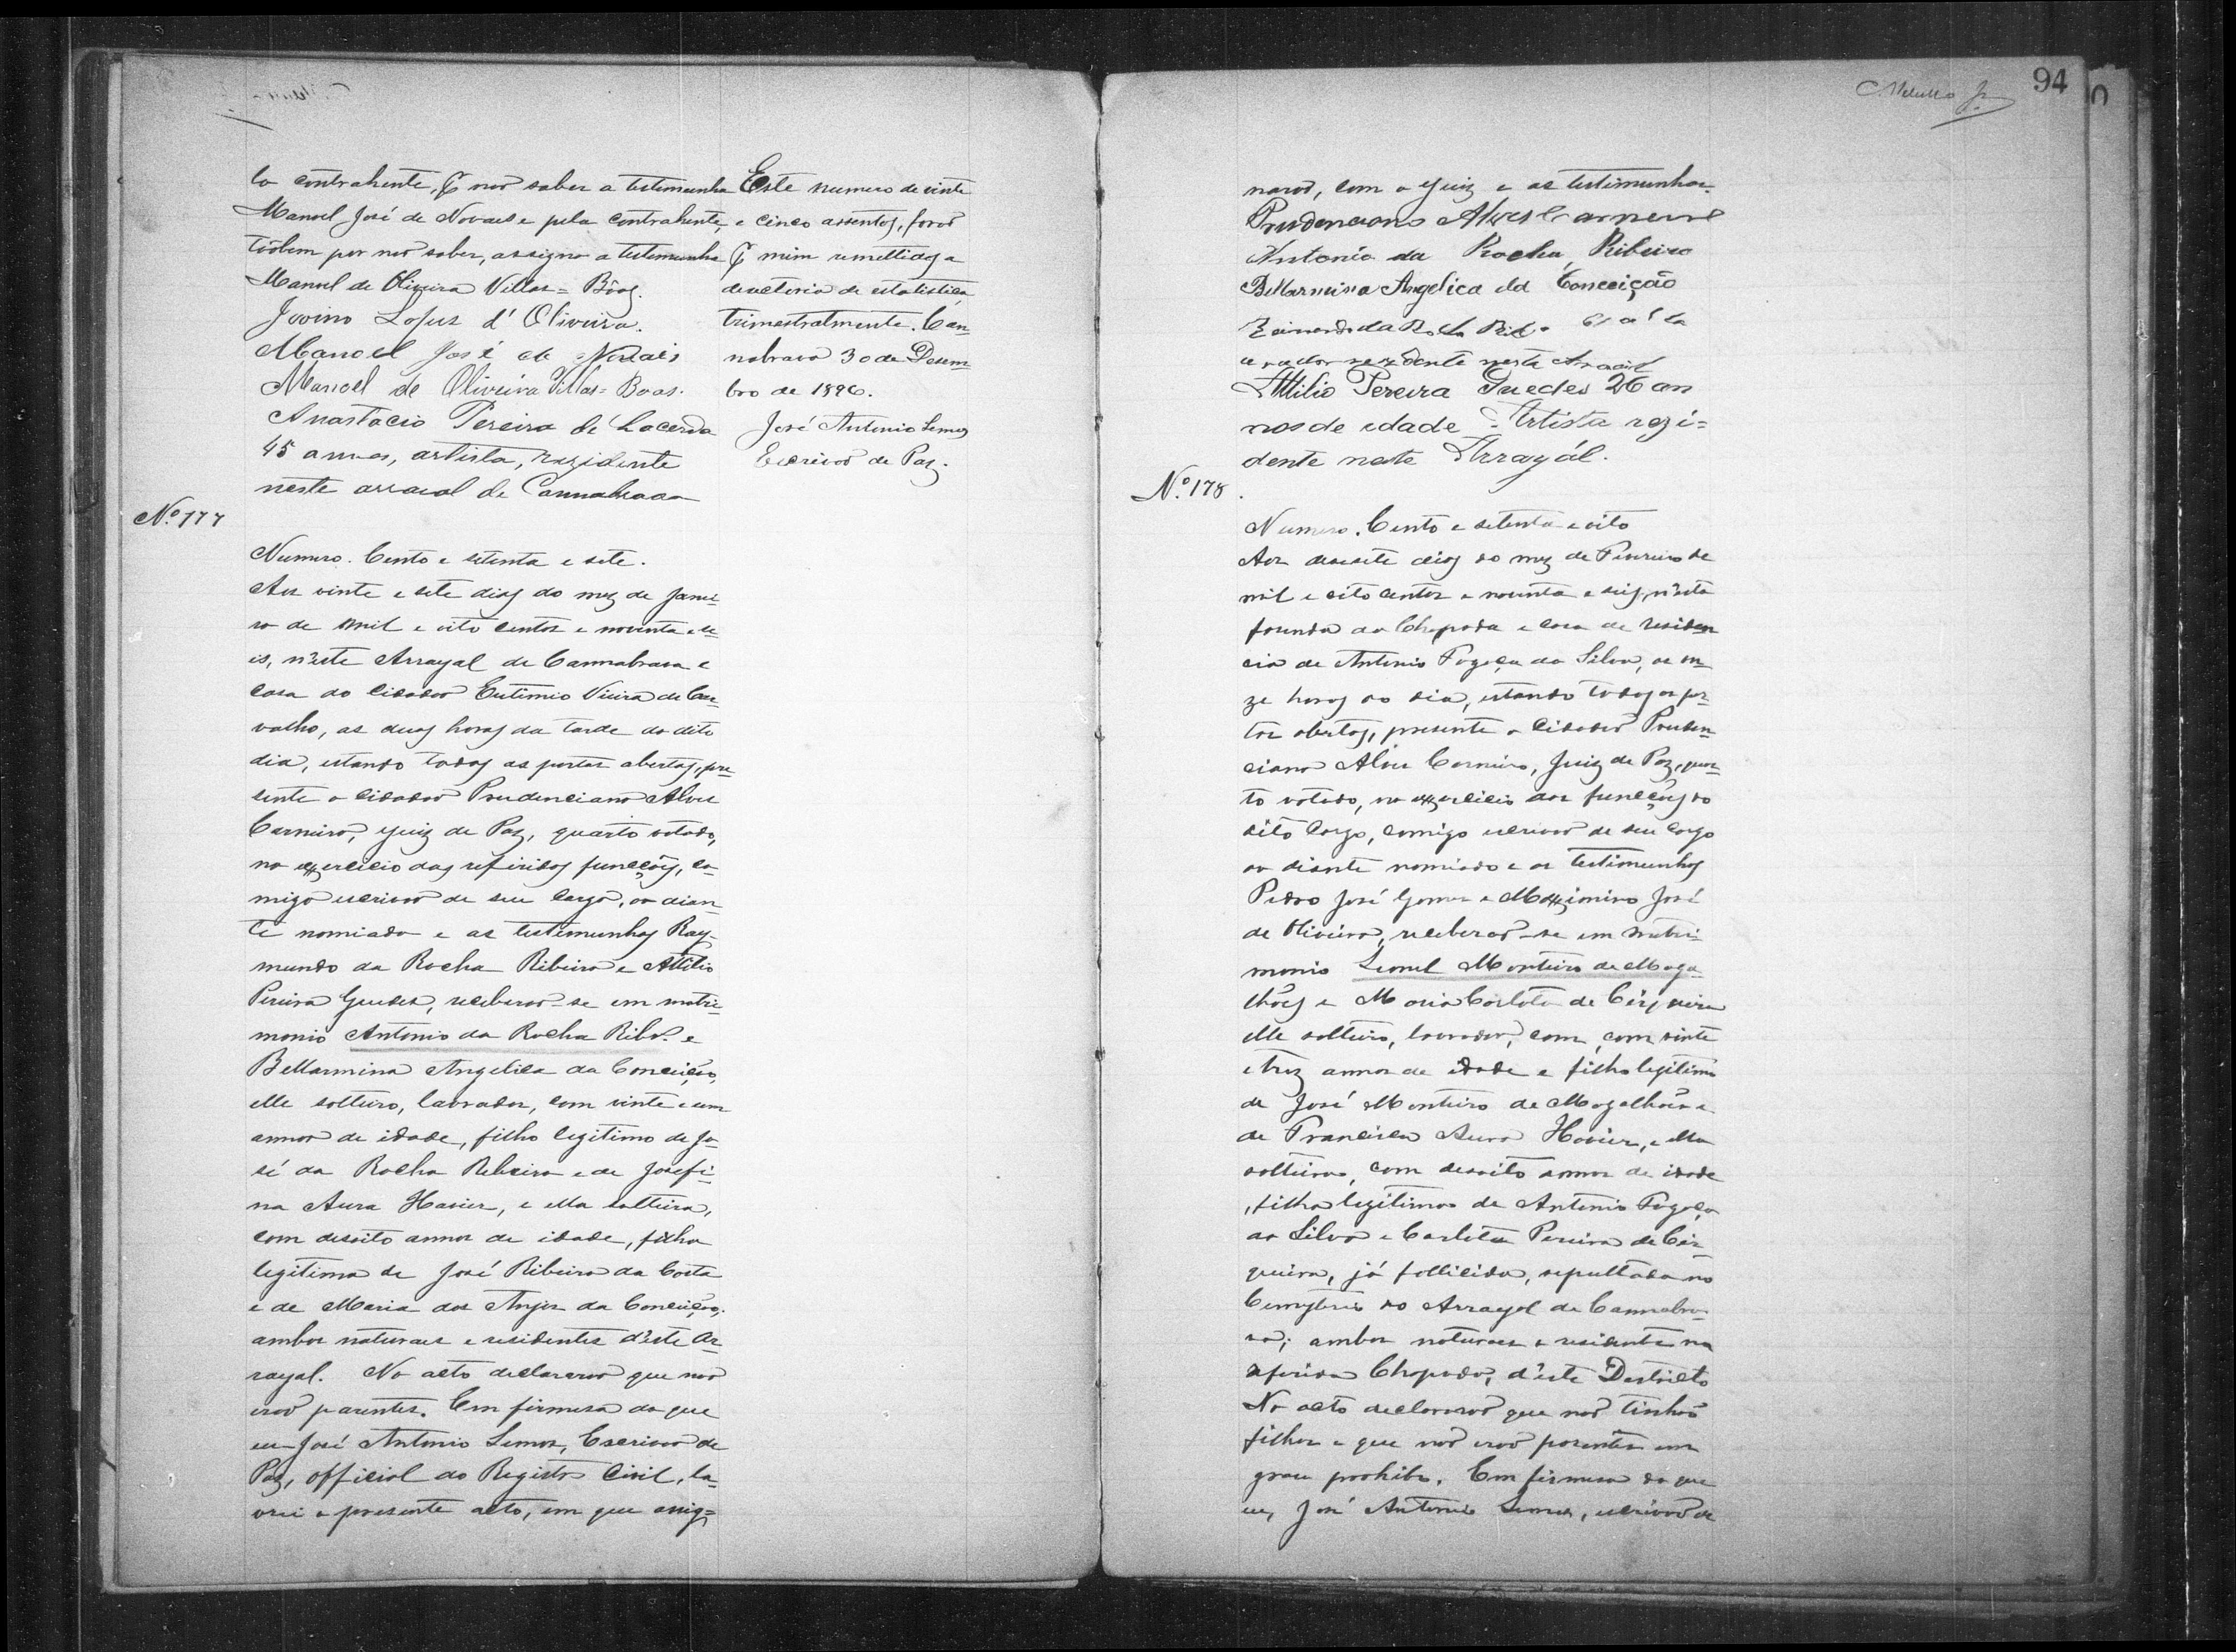 lo contrahente, por não saber a testemunha
Manoel José de Novaes e pela contrahente,
tãobem por não saber, assigna a testemunha
Manoel de Oliveira Villas=Bôas.
Jovino Lopes d'Oliveira.
Manoel José de Novais
Manoel de Oliveira Villas=Boas.
Anastacio Pereira de Lacerda
45 annos, artista, rezidente
neste arraial de Cannabrava
Este numero de vinte
e cinco assentos, forão
mim remettidos a
directoria de estatistica
trimestralmente. Can-
nabrava 30 de Desem-
bro de 1896.
José Antonio Lemos
Escrivão de Paz.
Nº 177
Numero. Cento e setenta e sete.
Aos vinte e sete dias do mez de Janei-
ro de mil e oito centos e noventa e se-
is, n'este Arrayal de Cannabrava e
casa do Cidadão Eutimio Vieira de Car-
valho, as duas horas da tarde do dito
dia, estando todas as portas abertas, pre-
sente o Cidadão Prudenciano Alves
Carneiro, Juiz de Paz, quarto votado,
no exercicio das referidas funcções, co-
migo escrivão de seu cargo, ao dian-
te nomiado e as testimunhas Ray-
mundo da Rocha Ribeiro e Attilio
Pereira Guedes, receberão-se em matri-
monio Antonio da Rocha Ribº e
Bellarmina Angelica da Conceição,
elle solteiro, lavrador, com vinte e um
annos de idade, filho legitimo de Jo-
sé da Rocha Ribeiro e de Josefi-
na Aura Havier, e ella solteira,
com desoito annos de idade, filha
legitima de José Ribeiro da Costa
e de Maria dos Anjos da Conceição,
ambos naturaes e residentes d'este Ar-
rayal. No acto declararão que não
erão parentes. Em firmesa do que
eu José Antonio Lemos, Escrivão de
Paz, official do Registro Civil, la-
vrei o presente acto, em que assig=
94
narão, com o Juiz e as testimunhas.
Prudenciano Alves Carneiro
Antonio da Rocha Ribeiro
Bellarmina Angelica da Conceição
Raimundo da Rocha Ribº
rezidente nesta Arraial
Attilio Pereira Guedes 26 an
nos de edade Artista rezi=
dente neste Arrayál.
Nº 178
Numero. Cento e setenta e oito
Aos desesete dias do mez de Fevereiro de
mil e oito centos e noventa e seis, n'esta
fasenda da Chapada e casa de residen
cia de Antonio Fogaça da Silva, as on-
ze horas do dia, estando todas as por-
tas abertas, presente o Cidadão Pruden-
ciano Alves Carneiro, Juiz de Paz, quar-
to votado, no exercicio das funcções do
dito cargo, comigo escrivão de seu cargo
ao diante nomiado e as testimunhas
Pedro José Gomes e Maximino José
de Oliveira, receberão-se em matri-
monio Leonel Monteiro de Maga-
lhães e Maria Carlota de Cirqueira
elle solteiro, lavrador, com, com vinte
e trez annos de idade e filho legitimo
de José Monteiro de Magalhães e
de Francisca Aura Havier, e ella
solteira, com desoito annos de idade
, filha legitima de Antonio Fogaça
da Silva e Carlota Pereira de Cir-
queira, já fallicida, sepultada no
Cemyterio do Arrayal de Cannabra-
va; ambos naturaes e residentes na
referida Chapada, d'este Destricto
No acto declararão que não tinhão
filhos e que não erão parentes em
grau prohibo. Em firmesa do que
eu, José Antonio Lemos, escrivão de